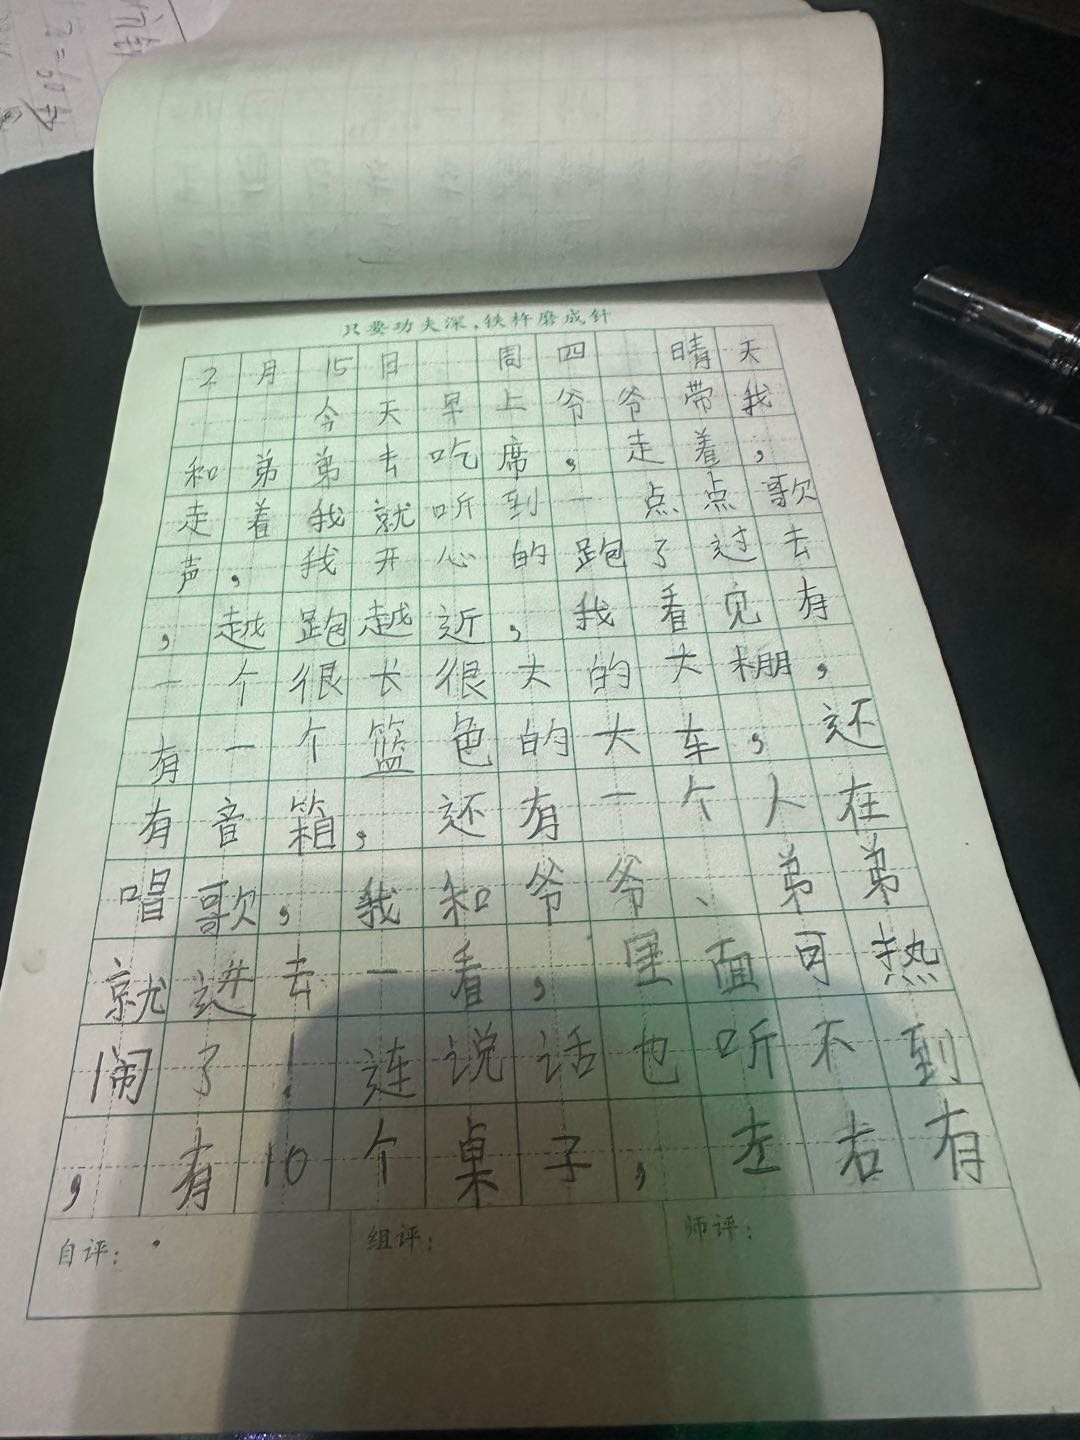 只要功夫深,铁杵磨成针
2月15日 周四 晴天
今天早上爷爷带我
和弟弟去吃席,走着,
走着我就听到一点点歌
声,我开心的跑了过去
,越跑越近,我看见有
一个很长很大的大棚,
有一个篮色的大车,还
有音箱,还有一个人在
唱歌,我和爷爷、弟弟
就进去一看,里面可热
闹了!连说话也听不到
,有10个桌子,左右有
自评:
组评:
师评: